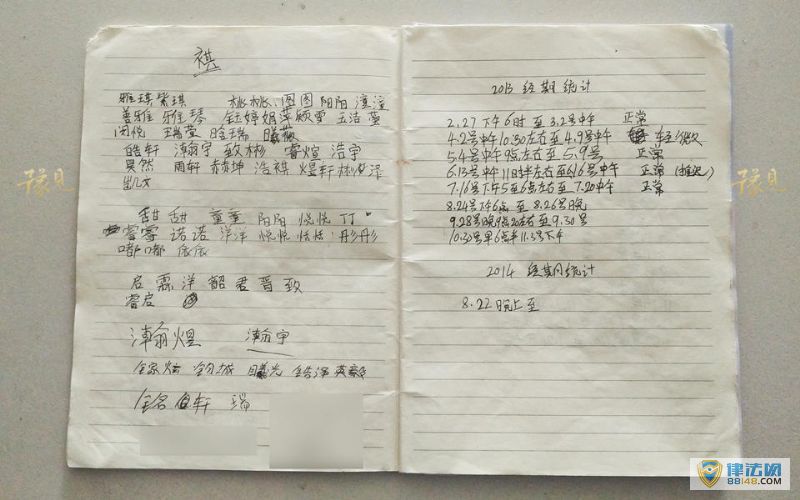 祺
雅琪 紫琪 桃桃 图图 阳阳
善雅 雅琴 钰婷 娟 萍 颖雪 五洁 莹
闵悦 瑞莹 晗瑞 曦薇
皓轩 瀚宇 致彬 睿煊 浩宇
昊然 雨轩 坤 浩祺 煜轩 彬
甜甜 童童 阳阳 悦悦 丁丁
睿睿 诺诺 洋洋 悦悦 恬恬 彤彤
嘟嘟 依依
启 霖 洋 韶 君 晋 致
睿启
瀚煜 瀚宇
曦光 皓泽 英毅
轩 瑞
2013 经期统计
2.27下午6时至3.2号中午 正常
4.2号中午10:30左右至4.9号中午 轻微
5.4号中午 左右至5.9号 正常
6.13号中午11时半左右至6.16号中午 正常(推迟)
7.16号下午5至6点左右至7.20中午 正常
8.24号下午6点至8.26号晚
9.28号晚9点20左右至9.30号
10.30号早6点半11.3号下午
2014 经期统计
8.22晚上至
豫见
豫见
律法网
88148.COM